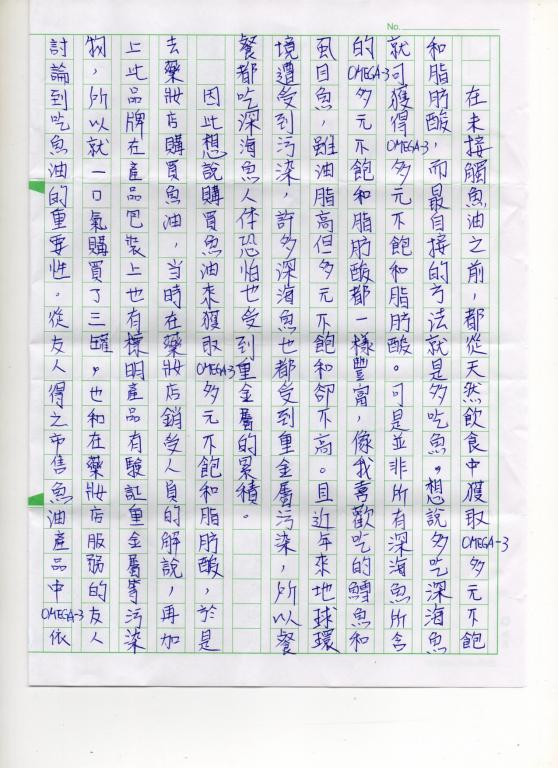 No.
在未接觸魚油之前，都從天然飲食中獲取OMEGA-3多元不飽
和脂肪酸，而最直接的方法就是多吃魚。想說多吃深海魚
就可獲得OMEGA-3多元不飽和脂肪酸。可是並非所有深海魚所含
的OMEGA-3多元不飽和脂肪酸都一樣豐富，像我喜歡吃的鱈魚和
虱目魚，雖油脂高但多元不飽和卻不高。且近年來地球環
境遭受到污染，許多深海魚也都受到重金屬污染，所以餐
餐都吃深海魚人体恐怕也受到重金屬的累積。
因此想說購買魚油來獲取OMEGA-3多元不飽和脂肪酸，於是
去藥妝店購買魚油，当時在藥妝店銷受人員的解說，再加
上此品牌在產品包裝上也有標明產品有驗証重金屬等污染
物，所以就一口氣購買了三罐。也和在藥妝店服務的友人
討論到吃魚油的重要性。從友人得之市售魚油產品中OMEGA-3依